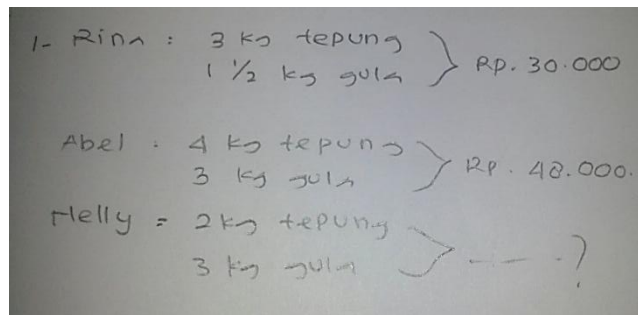 1- Rina : 3 kg tepung
1 1/2 kg gula } Rp. 30.000
Abel : 4 kg tepung
3 kg gula } Rp. 48.000.
Helly = 2 kg tepung
3 kg gula } - - - . ?